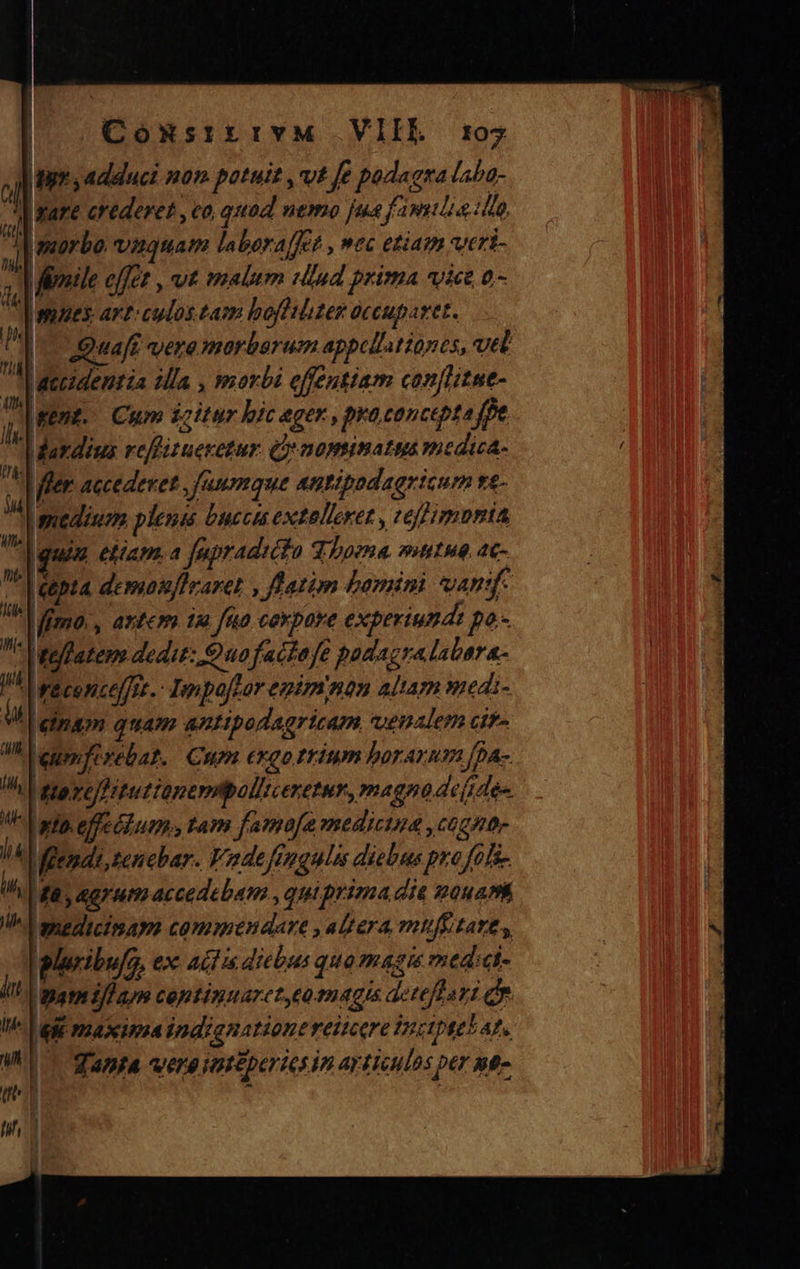 CONSILIVM VIII. 105
tur, adduci non potuit, vt se podagra labo-
rare crederet, eo quod nemo sua familia illo
morbo vnquam laborasset, nec etiam veri-
simile esset, vt malum illud prima vice o-
mnes articulos tam hostiliter occuparet.
Quasi vero morborum appellationes, vel
accidentia illa, morbi essentiam constitue-
rent. Cum igitur hic æger, pro concepta spe
tardius restitueretur & nominatus medica-
ster accederet, suumque antipodagricum re-
medium plenis buccis extolleret, testimonia
quin etiam a supradicto Thoma mutuo ac-
cepta demonstraret, statim homini vanis-
simo, artem in suo corpore experiundi po-
testatem dedit: Quo facto se podagra labora-
re concessit. Impostor enim non aliam medi-
cinam quam antipodagricam venalem cir-
cumferebat. Cum ergo trium horarum spa-
tio restitutionem polliceretur, magno deside-
rio effectum, tam famosæ medicinæ, cogno-
scendi, tenebar. Vnde singulis diebus pro soli-
to, ægrum accedebam, qui prima die nouam
medicinam commendare, altera mussitare,
pluribusq; ex actis diebus quo magis medici-
nam istam continuaret, eo magis detestari &
cū maxima indignatione reiicere incipiebat.
Tanta vero intēperies in articulos per no-